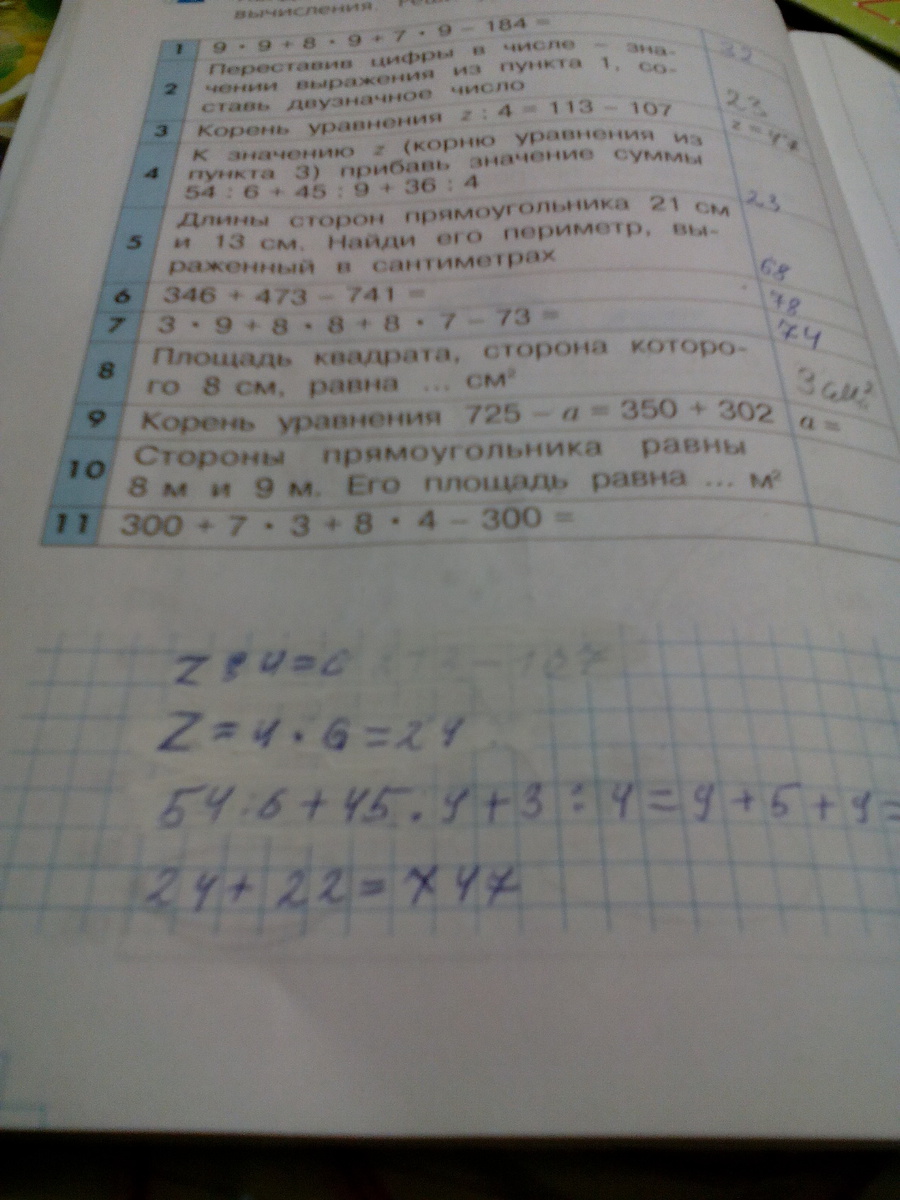 вычисления.
1 9 · 9 + 8 · 9 + 7 · 9 – 184 = 32
2 Переставив цифры в числе – зна-
чении выражения из пункта 1, со-
ставь двузначное число 23
3 Корень уравнения z : 4 = 113 – 107 z =
4 К значению z (корню уравнения из
пункта 3) прибавь значение суммы
54 : 6 + 45 : 9 + 36 : 4 23
5 Длины сторон прямоугольника 21 см
и 13 см. Найди его периметр, вы-
раженный в сантиметрах 68
6 346 + 473 – 741 = 78
7 3 · 9 + 8 · 8 + 8 · 7 – 73 = 74
8 Площадь квадрата, сторона которо-
го 8 см, равна ... см² 3 см²
9 Корень уравнения 725 – a = 350 + 302 a =
10 Стороны прямоугольника равны
8 м и 9 м. Его площадь равна ... м²
11 300 + 7 · 3 + 8 · 4 – 300 =
z : 4 = 6 – 107
z = 4 · 6 = 24
54 : 6 + 45 : 9 + 3 : 4 = 9 + 5 + 9 =
24 + 22 = 747